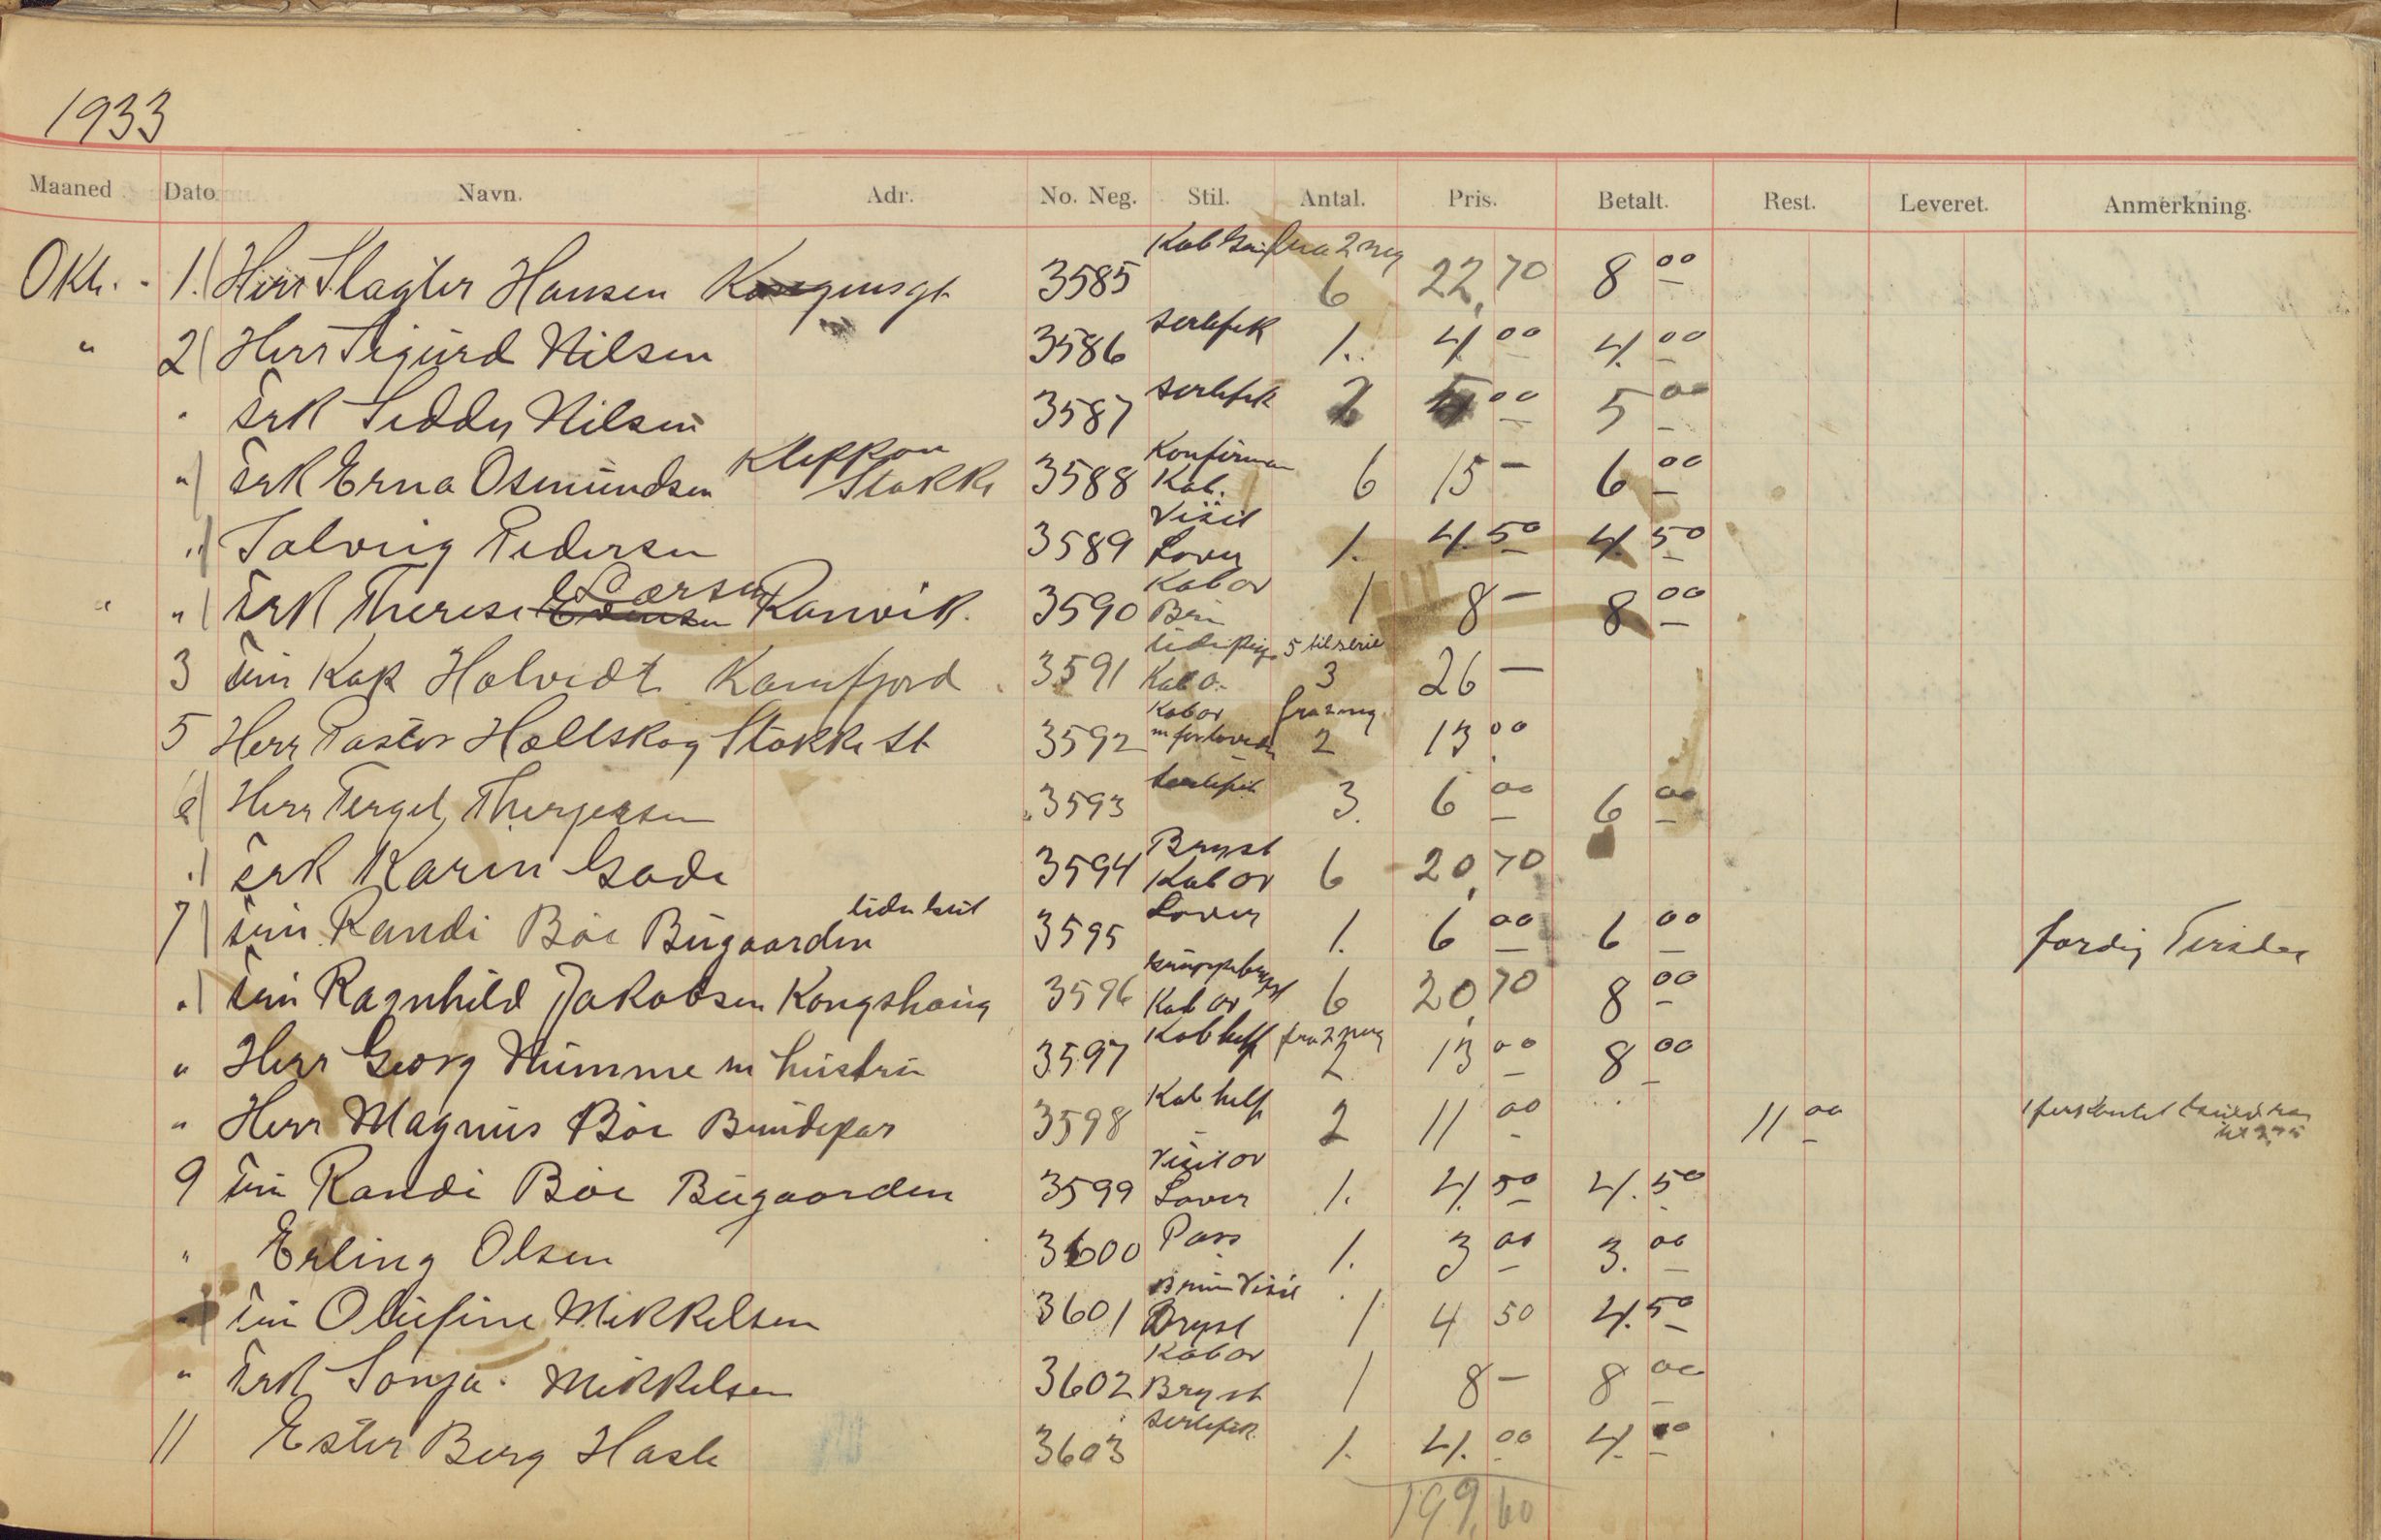 1933
Maaned Dato Navn. Adr. No. Neg. Stil. Antal. Pris. Betalt. Rest. Leveret. Anmerkning.
Okt. 1. Herr Slagter Hansen Kongensgt 3585 Kab fra 2 neg 6 22,70 8 00
" 2 Herr Sigurd Nilsen 3586 Sertefik 1. 4. 00 4. 00
" Frk Seddy Nilsen 3587 Sertefik 2 5 00 5 00
" Frk Erna Osmundsen Kleppan Stokke 3588 Konfirman Kab. 6 15 — 6 00
" Solveig Pedersen 3589 Visit Lover 1. 4. 50 4. 50
" Frk Therese Larsen Ranvik. 3590 Kab or 1 8 — 8 00
3 Fru Kap Holvedt Kamfjord 3591 Kab 5 til serie 3 26 —
5 Herr Pastor Hallskog Stokke St 3592 Kab or fra 2 neg 2 13 00
6 Herr Tergel Thergersen 3593 Sertefik 3. 6 00 6 00
" Frk Karin Gade 3594 Bryst Kab or 6 20,70
7 Fru Randi Böe Bugaarden 3595 Lover 1. 6 00 6 00 færdig Tirsdag
" Fru Ragnhild Jakobsen Kongshaug 3596 Knappebryst Kab or 6 20,70 8 00
" Herr Georg Numme m hustru 3597 Kab helf fra 2 neg 2 13 00 8 00
" Herr Magnus Böe Brudepar 3598 Kab helf 2 11 00 11 00
9 Fru Randi Böe Bugaarden 3599 Visit or Lover 1. 4. 50 4. 50
" Erling Olsen 3600 Pass 1. 3 00 3. 00
" Fru Olufine Mikkelsen 3601 Brun Visit Bryst 1 4 50 4. 50
" Frk Sonja Mikkelsen 3602 Kab or Bryst 1 8 — 8 00
11 Ester Berg Hasle 3603 Sertefik 1. 4. 00 4. 00
199,60